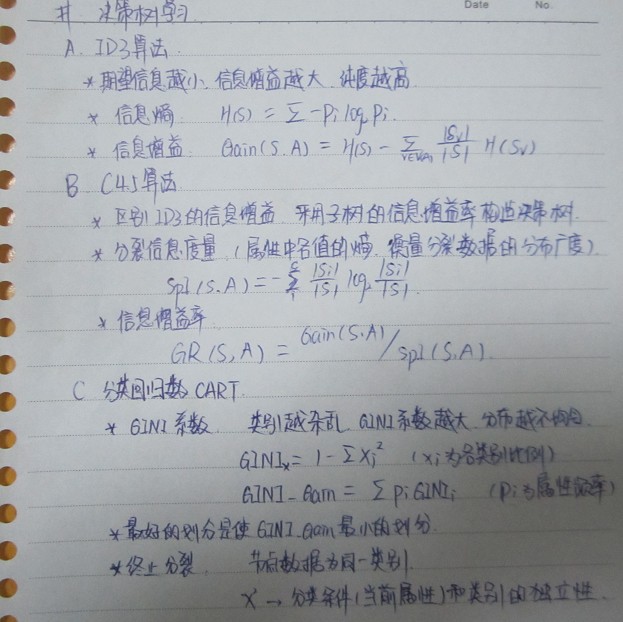 Date No.
廾 决策树学习
A. ID3算法.
* 期望信息越小、信息增益越大. 纯度越高.
* 信息熵. H(S) = Σ -Pi log Pi.
* 信息增益. Gain(S.A) = H(S) - Σ |Sv|/|S| H(Sv)
B C4.5算法.
* 区别ID3的信息增益. 采用子树的信息增益率构造决策树.
* 分裂信息度量 (属性中各值的熵. 衡量分裂数据的分布广度).
SplI(S.A) = - Σ |Si|/|S| log |Si|/|S|.
* 信息增益率.
GR(S,A) = Gain(S.A) / SplI(S.A).
C 分类回归数 CART.
* GINI系数. 类别越杂乱. GINI系数越大. 分布越不均匀.
GINIx = 1 - Σ Xi² (xi为各类别比例)
GINI-Gain = Σ Pi GINIi (Pi为属性频率)
* 最好的划分是使GINI.Gain最小的划分.
* 终止分裂. 节点数据为同一类别.
X² → 分类条件(当前属性)和类别的独立性.